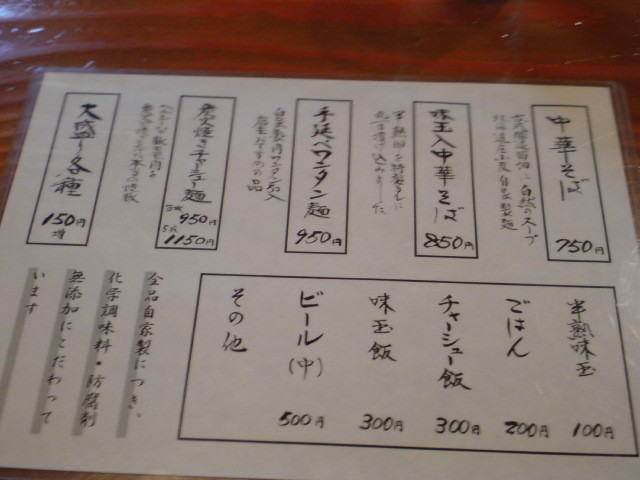 中華そば
750円
自然のスープ
自家製麺
味玉入中華そば
850円
半熟卵を特製タレに
漬け込みました
手延べワンタン麺
950円
自家製肉ワンタン5ケ入
当店おすすめの品
炭火焼きチャーシュー麺
950円
5枚
1150円
大盛り各種
150円
増
半熟味玉
100円
ごはん
200円
チャーシュー飯
300円
味玉飯
300円
ビール(中)
500円
その他
全品自家製につき、
化学調味料・防腐剤
無添加にこだわって
います